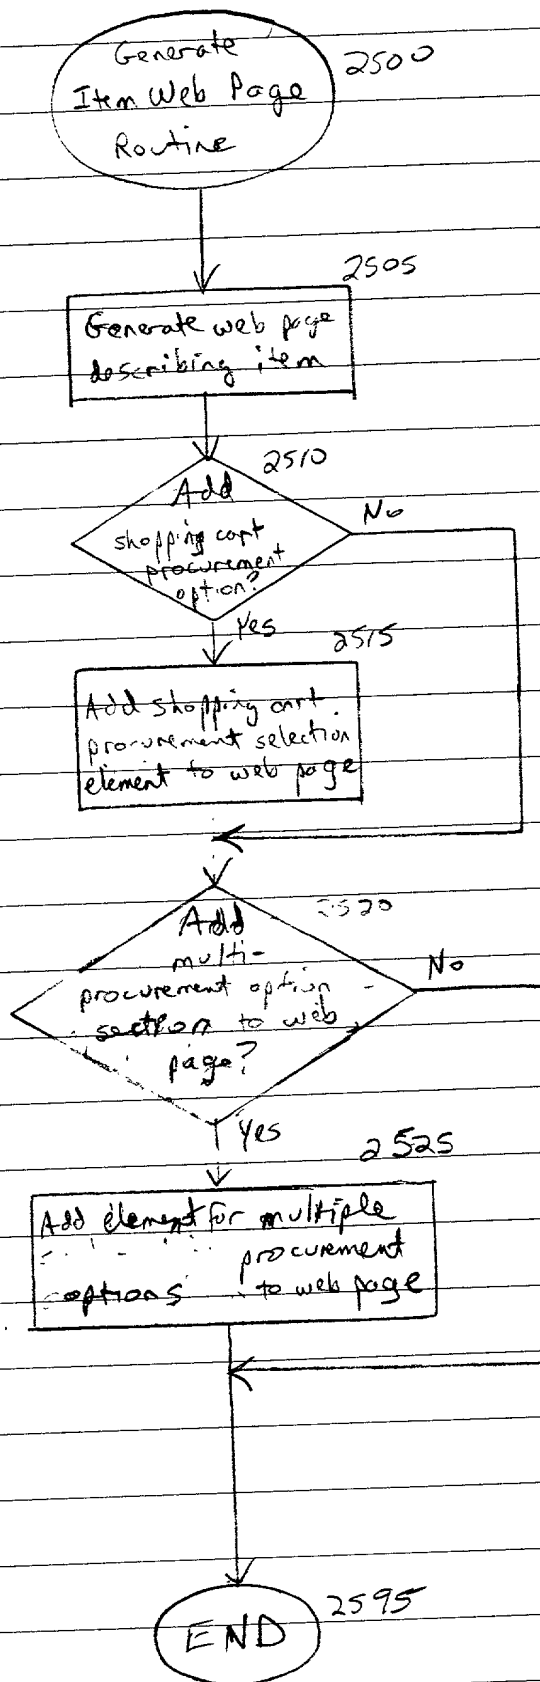 Generate
2500
Item Web Page
Routine
2505
Generate web page
describing item
2510
Add
shopping cart
procurement
option?
No
Yes
2515
Add shopping cart
procurement selection
element to web page
2520
Add
multi-
procurement option
section to web
page?
No
Yes
2525
Add element for multiple
procurement
options to web page
2595
END